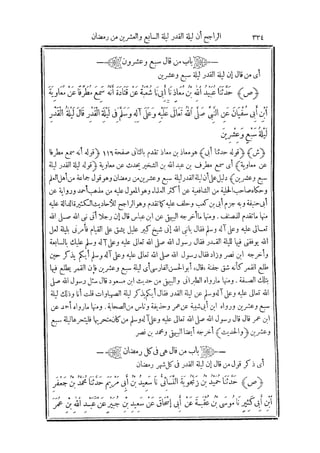 ٣٣٤ الراجح أن ليلة القدر ليلة السابع والعشرين من رمضان
باب من قال سبع وعشرون
أى من قال إن ليلة القدر ليلة سبع وعشرين
(ص) حَدَّثَنَا عُبَيْدُ اللهِ بْنُ مُعَاذٍ نَا أَبِى نَا شُعْبَةُ عَنْ قَتَادَةَ أَنَّهُ سَمِعَ مُطَرِّفًا عَنْ مُعَاوِيَةَ
ابْنِ أَبِى سُفْيَانَ عَنِ النَّبِىِّ صَلَّى اللهُ تَعَالَى عَلَيْهِ وَعَلَى آلِهِ وَسَلَّمَ فِى لَيْلَةِ الْقَدْرِ قَالَ لَيْلَةُ الْقَدْرِ
لَيْلَةُ سَبْعٍ وَعِشْرِينَ
(ش) (قوله حدثنا أبى) هو معاذ بن معاذ تقدم بالثانى صفحة ١١٩ (قوله أنه سمع مطرفا
عن معاوية) أى سمع مطرف بن عبد الله بن الشخير يحدث عن معاوية (قوله ليلة القدر ليلة
سبع وعشرين) دليل على أن ليلة القدر ليلة سبع وعشرين من رمضان وهو قول جماعة من أهل العلم
وحكاه صاحب الحلية من الشافعية عن أكثر العلماء وهو المعول عليه من مذهب أحمد ورواية عن
أبى حنيفة وبه جزم أبى بن كعب وحلف عليه كما تقدم وهو الراجح للأحاديث الكثيرة الدالة عليه
منها ما تقدم للمصنف. ومنها ما أخرجه البيهقى عن ابن عباس قال إن رجلا أتى نبى الله صلى الله
تعالى عليه وعلى آله وسلم فقال يا نبى الله إنى شيخ كبير عليل يشق على القيام فأمرنى بليلة لعل
الله يوفقنى فيها لليلة القدر فقال رسول الله صلى الله تعالى عليه وعلى آله وسلم عليك بالسابعة
وأخرجه ابن نصر وزاد فقال رسول الله صلى الله تعالى عليه وعلى آله وسلم أيكم يذكر حين
طلع القمر كأنه شق جفنة، قال أبو الحسن الفارسى أى ليلة سبع وعشرين فإن القمر يطلع فيها
بتلك الصفة. ومنها ما رواه الطبرانى والبيهقى من حديث ابن مسعود قال سئل رسول الله صلى
الله تعالى عليه وعلى آله وسلم عن ليلة القدر فقال أيكم يذكر ليلة الصهباوات قلت أنا وذلك ليلة
سبع وعشرين ورواه ابن أبى شيبة عن عمر وحذيفة وناس من الصحابة. ومنها ما رواه أحمد عن
ابن عمر قال قال رسول الله صلى الله تعالى عليه وعلى آله وسلم من كان متحريها فليتحرها ليلة سبع
وعشرين (والحديث) أخرجه أيضا البيهقى ومحمد بن نصر
باب من قال هى فى كل رمضان
أى ذكر قول من قال إن ليلة القدر فى كل شهر رمضان
(ص) حَدَّثَنَا حُمَيْدُ بْنُ زَنْجُويَةَ النَّسَائِىُّ نَا سَعِيدُ بْنُ أَبِى مَرْيَمَ حَدَّثَنَا مُحَمَّدُ بْنُ جَعْفَرِ
ابْنِ أَبِى كَثِيرٍ نَا مُوسَى بْنُ عُقْبَةَ عَنْ أَبِى إِسْحَاقَ عَنْ سَعِيدِ بْنِ جُبَيْرٍ عَنْ عَبْدِ اللهِ بْنِ عُمَرَ